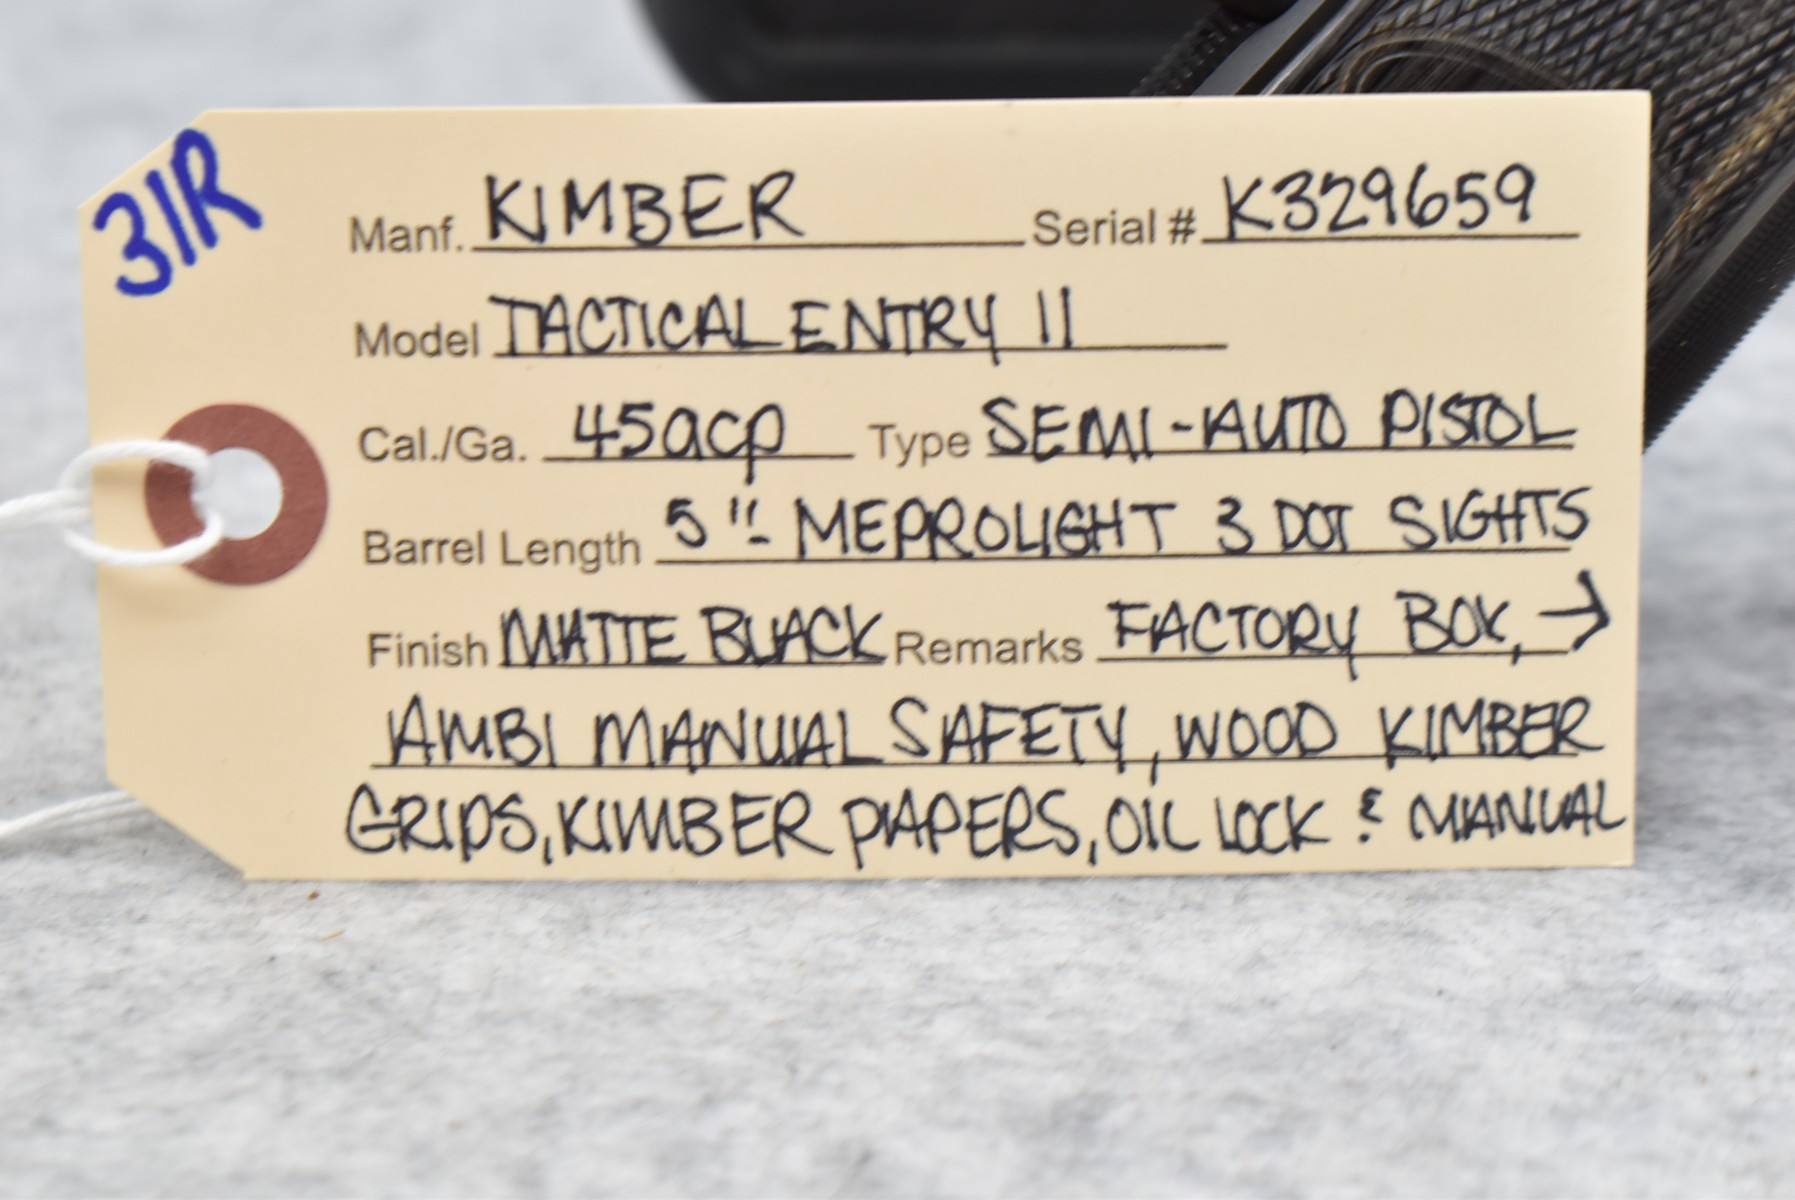 31R
Manf. KIMBER Serial # K329659
Model TACTICAL ENTRY II
Cal./Ga. 45acp Type SEMI-AUTO PISTOL
Barrel Length 5"- MEPROLIGHT 3 DOT SIGHTS
Finish MATTE BLACK Remarks FACTORY BOX, →
AMBI MANUAL SAFETY, WOOD KIMBER
GRIPS, KIMBER PAPERS, OIL LOCK & MANUAL